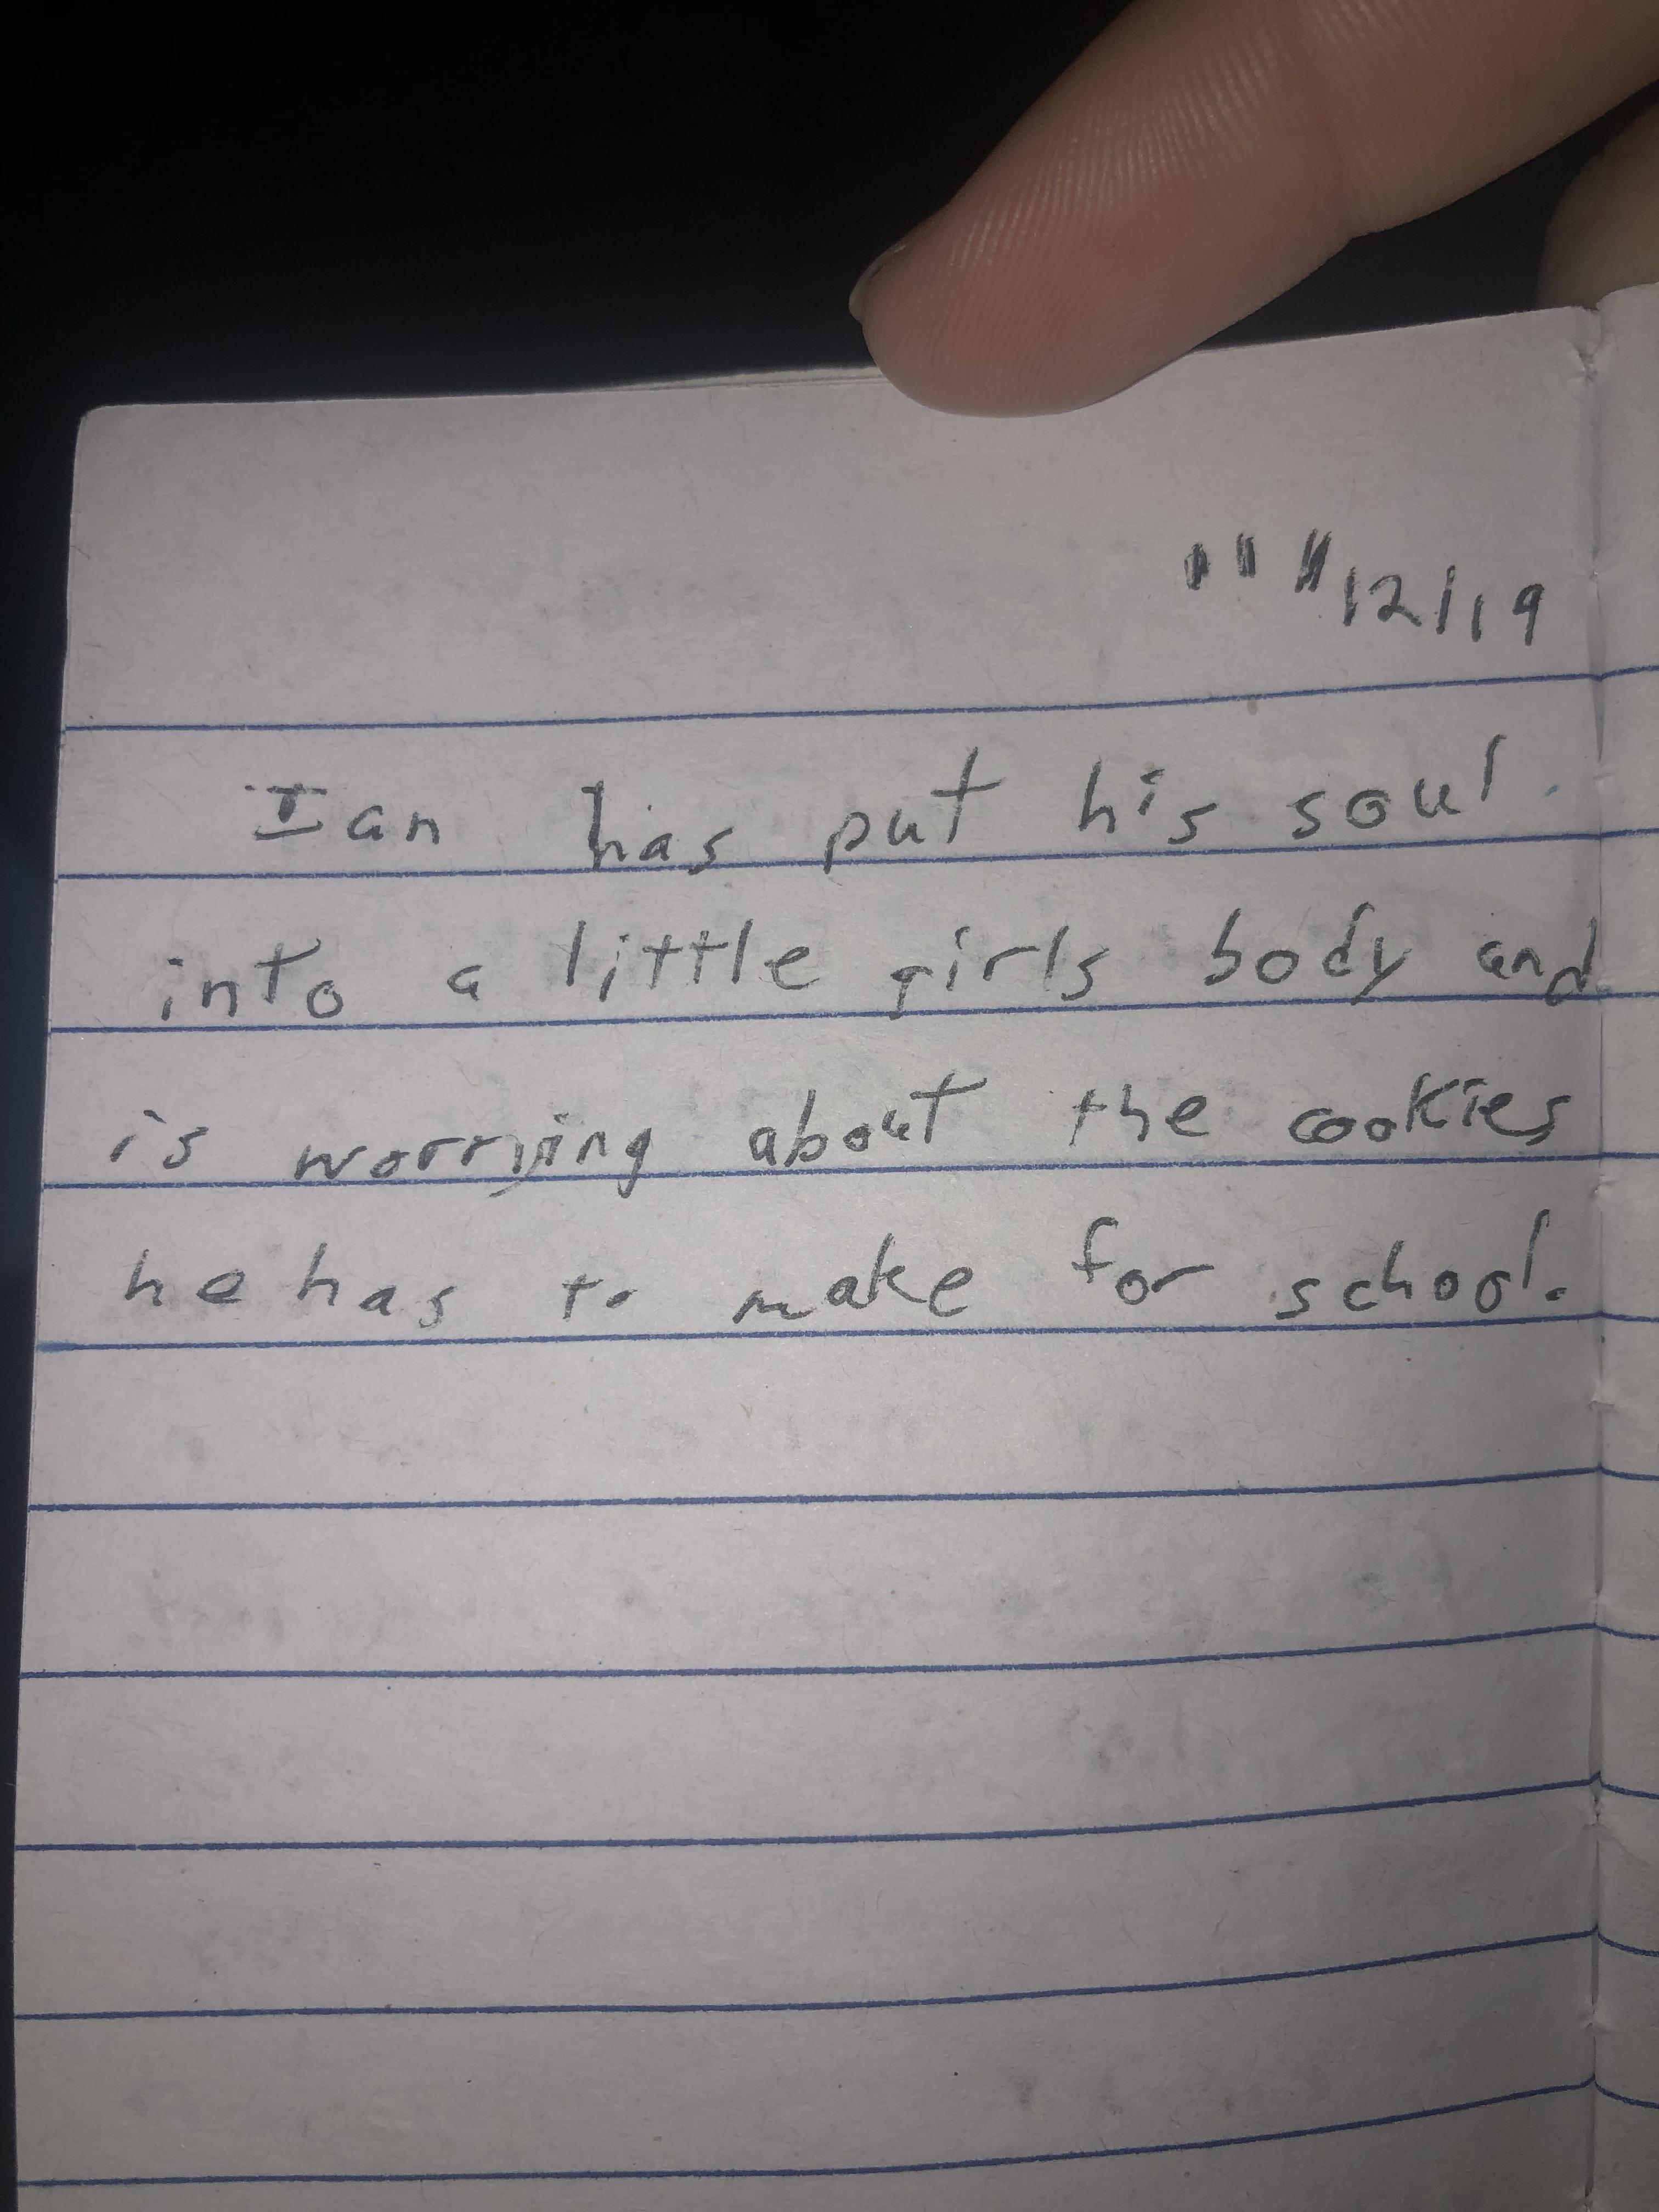 12/19
Ian has put his soul
into a little girls body and
is worrying about the cookies
he has to make for school.